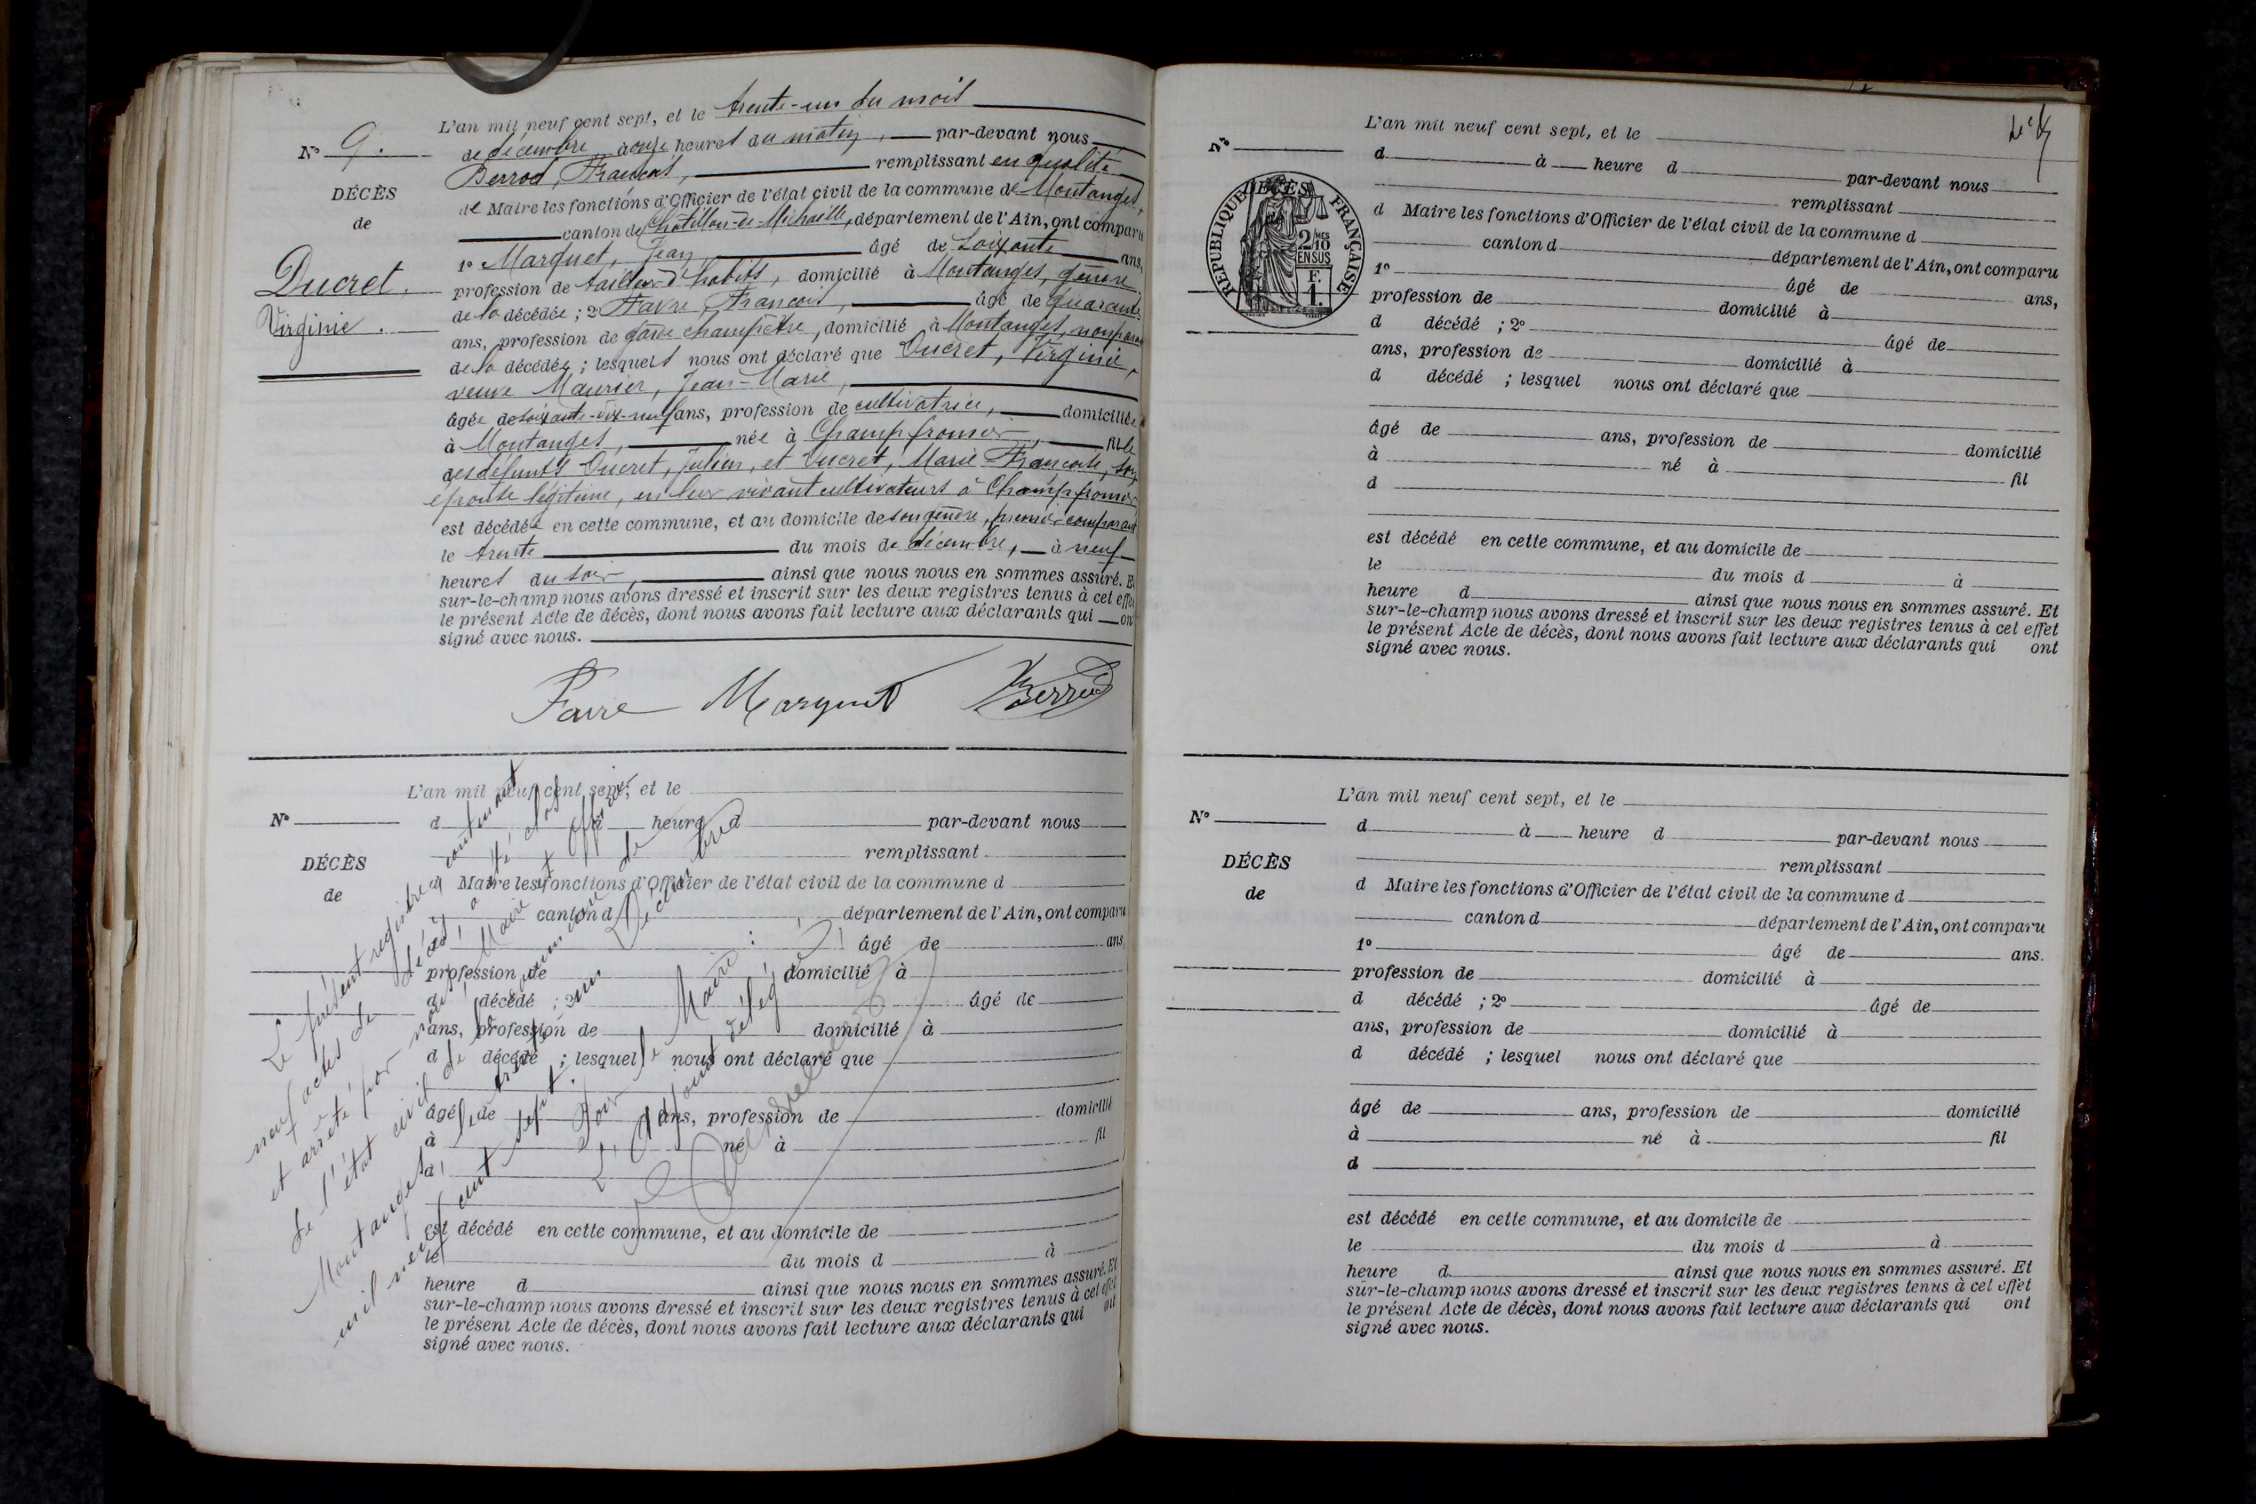 L'an mil neuf cent sept, et le trente-un du mois
N° 9. de décembre à onze heures du matin, par-devant nous
Berrod, François, remplissant en qualité
DÉCÈS
de Maire les fonctions d'Officier de l'état civil de la commune de Montanges,
de
canton de Châtillon-de-Michaille, département de l'Ain, ont comparu
1° Marquet, Jean âgé de soixante ans,
Ducret.
profession de tailleur d'habits, domicilié à Montanges, gendre
de la décédée ; 2° Favre, François, âgé de quarante
Virginie.
ans, profession de garde champêtre, domicilié à Montanges, non parent
de la décédée ; lesquels nous ont déclaré que Ducret, Virginie,
veuve Maurier, Jean-Marie,
âgée de soixante-dix-neuf ans, profession de cultivatrice, domiciliée
à Montanges, née à Champfromier, fille
des défunts Ducret, Julien, et Ducret, Marie Françoise, son
épouse légitime, en leur vivant cultivateurs à Champfromier
est décédée en cette commune, et au domicile de son gendre, premier comparant
le trente du mois de décembre, à neuf
heures du soir, ainsi que nous nous en sommes assuré. Et
sur-le-champ nous avons dressé et inscrit sur les deux registres tenus à cet effet
le présent Acte de décès, dont nous avons fait lecture aux déclarants qui ont
signé avec nous.
Favre Marquet Berrod
L'an mil neuf cent sept, et le
N°
d à heure d par-devant nous
remplissant
DÉCÈS
d Maire les fonctions d'Officier de l'état civil de la commune d
de
canton d département de l'Ain, ont comparu
âgé de ans
profession de domicilié à
d décédé ; 2° âgé de
ans, profession de domicilié à
d décédé ; lesquel nous ont déclaré que
âgé de ans, profession de domicilié
à né à fil
d
est décédé en cette commune, et au domicile de
le du mois d à
heure d ainsi que nous nous en sommes assuré. Et
sur-le-champ nous avons dressé et inscrit sur les deux registres tenus à cet effet
le présent Acte de décès, dont nous avons fait lecture aux déclarants qui ont
signé avec nous.
Le présent registre, contenant
neuf actes de décès, a été clos
et arrêté par nous, Maire et Officier
de l'état civil de la commune de
Montanges, le trente-un Décembre
mil neuf cent sept.
Pour le Maire :
L'Adjoint délégué,
L'an mil neuf cent sept, et le
N°
d à heure d par-devant nous
DÉCÈS
de
remplissant
RÉPUBLIQUE FRANÇAISE
2/10 MES EN SUS
F. 1.
d Maire les fonctions d'Officier de l'état civil de la commune d
canton d département de l'Ain, ont comparu
1° âgé de ans,
profession de domicilié à
d décédé ; 2° âgé de
ans, profession de domicilié à
d décédé ; lesquel nous ont déclaré que
âgé de ans, profession de domicilié
à né à fil
d
est décédé en cette commune, et au domicile de
le du mois d à
heure d ainsi que nous nous en sommes assuré. Et
sur-le-champ nous avons dressé et inscrit sur les deux registres tenus à cet effet
le présent Acte de décès, dont nous avons fait lecture aux déclarants qui ont
signé avec nous.
L'an mil neuf cent sept, et le
N°
d à heure d par-devant nous
DÉCÈS
remplissant
de
d Maire les fonctions d'Officier de l'état civil de la commune d
canton d département de l'Ain, ont comparu
1° âgé de ans.
profession de domicilié à
d décédé ; 2° âgé de
ans, profession de domicilié à
d décédé ; lesquel nous ont déclaré que
âgé de ans, profession de domicilié
à né à fil
d
est décédé en cette commune, et au domicile de
le du mois d à
heure d ainsi que nous nous en sommes assuré. Et
sur-le-champ nous avons dressé et inscrit sur les deux registres tenus à cet effet
le présent Acte de décès, dont nous avons fait lecture aux déclarants qui ont
signé avec nous.